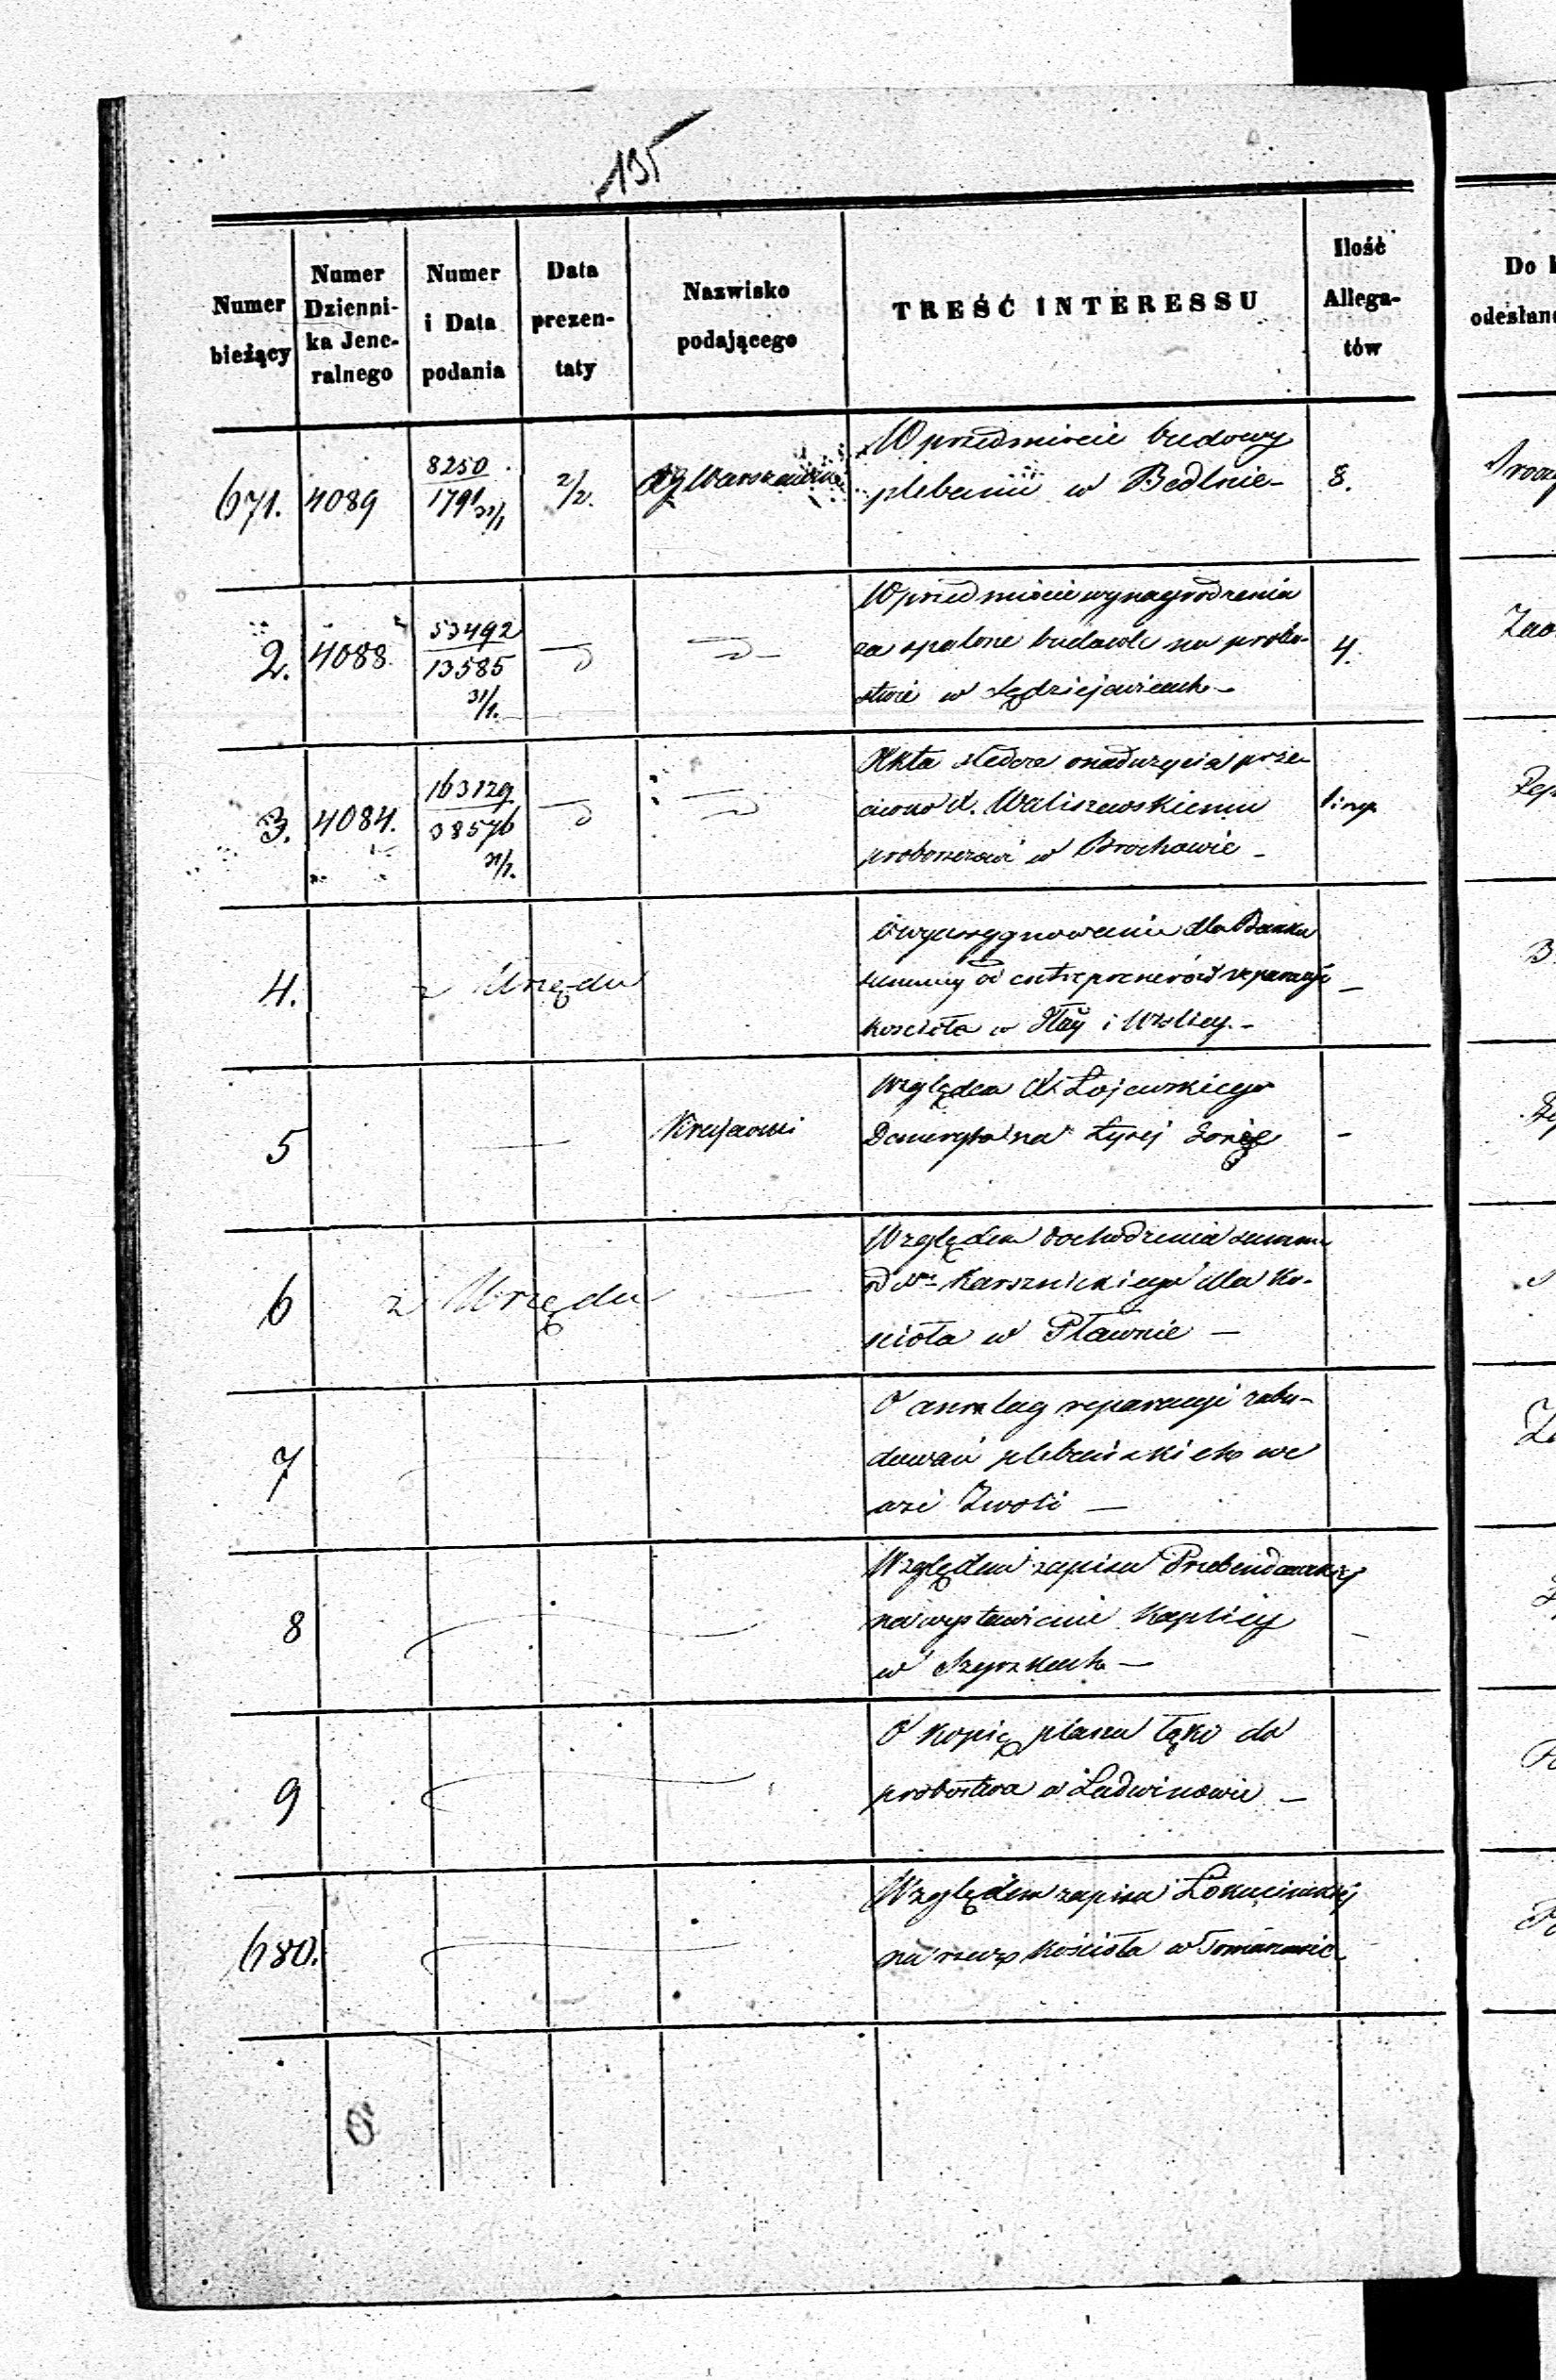 135
Numer bieżący | Numer Dzienni-ka Jene-ralnego | Numer i Data podania | Data prezen-taty | Nazwisko podającego | TREŚĆ INTERESSU | Ilość Allega-tów
Do
odesłan
671. | 4089 | 8250 / 1791 31/1 | 2/2. | RG Warszawski | W przedmiocie budowy
plebanii w Bedlnie | 8.
2. | 4088. | 53492 / 13585 31/1. | W przedmiocie wynagrodzenia
za spalone budowle na probo-
stwie w Sędziejowicach | 4.
3. | 4084. | 163129 / 38576 31/1. | Akta śledcze o nadużycia prze-
ciwko X. Waliszewskiemu
proboszczowi w Brochowie
4. | z Urzędu | O wyasygnowanie dla Banku
summy od entreprenerów reparacyi
kościoła w Iłży i Wolicy
5 | Względem X. Łojewskiego
Demeryta na Łysej Górze
6 | z Urzędu | Względem dochodzenia summ
od Karsznickiego dla Ko-
ścioła w Pławnie
7 | O anszlag reparacyi zabu-
dowań plebańskich we
wsi Zwoli
8 | Względem zapisu Przebendowskiej
na wystawienie Kaplicy
w
9 | O kopię planu łąki do
probostwa w Ludwinowie
680. | Względem zapisu
na rzecz kościoła w